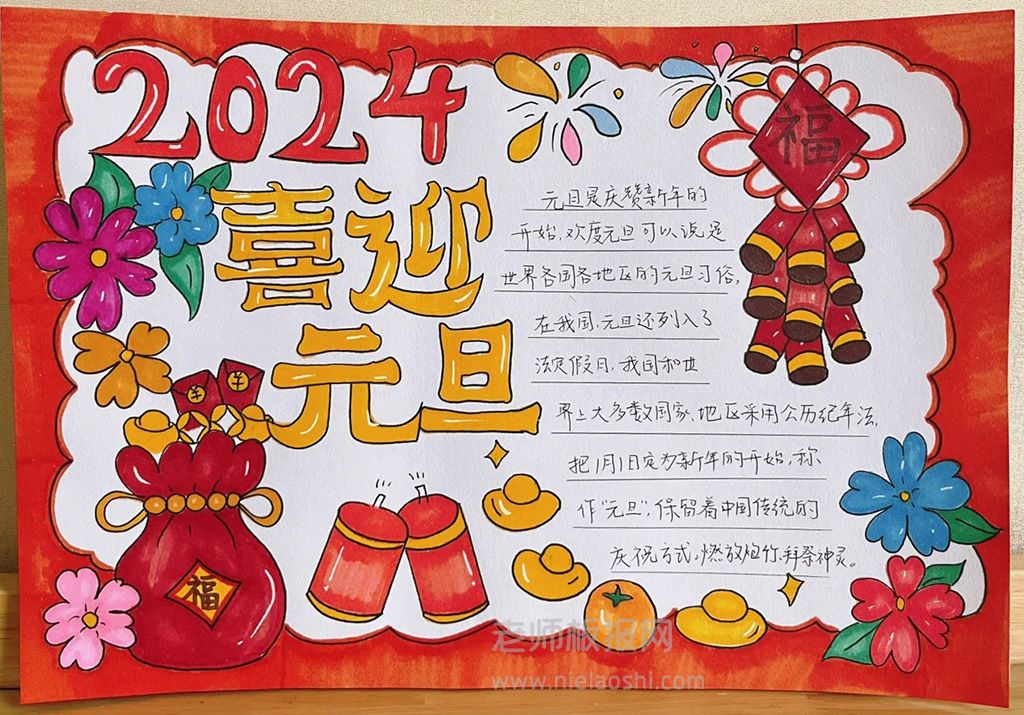 2024
喜迎
元旦
福
元旦是庆赞新年的
开始,欢度元旦可以说是
世界各国各地区的元旦习俗,
在我国,元旦还列入了
法定假日,我国和世
界上大多数国家、地区采用公历纪年法,
把1月1日定为新年的开始,称
作"元旦",保留着中国传统的
庆祝方式,燃放炮竹、拜祭神灵。
福
老师板报网
www.nielaoshi.com